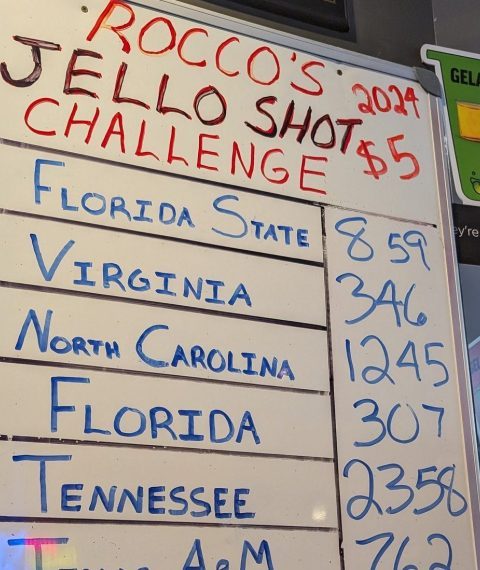 ROCCO'S
JELLO SHOT 2024
CHALLENGE $5
FLORIDA STATE 859
VIRGINIA 346
NORTH CAROLINA 1245
FLORIDA 307
TENNESSEE 2358
A&M 762
GELA
ey're